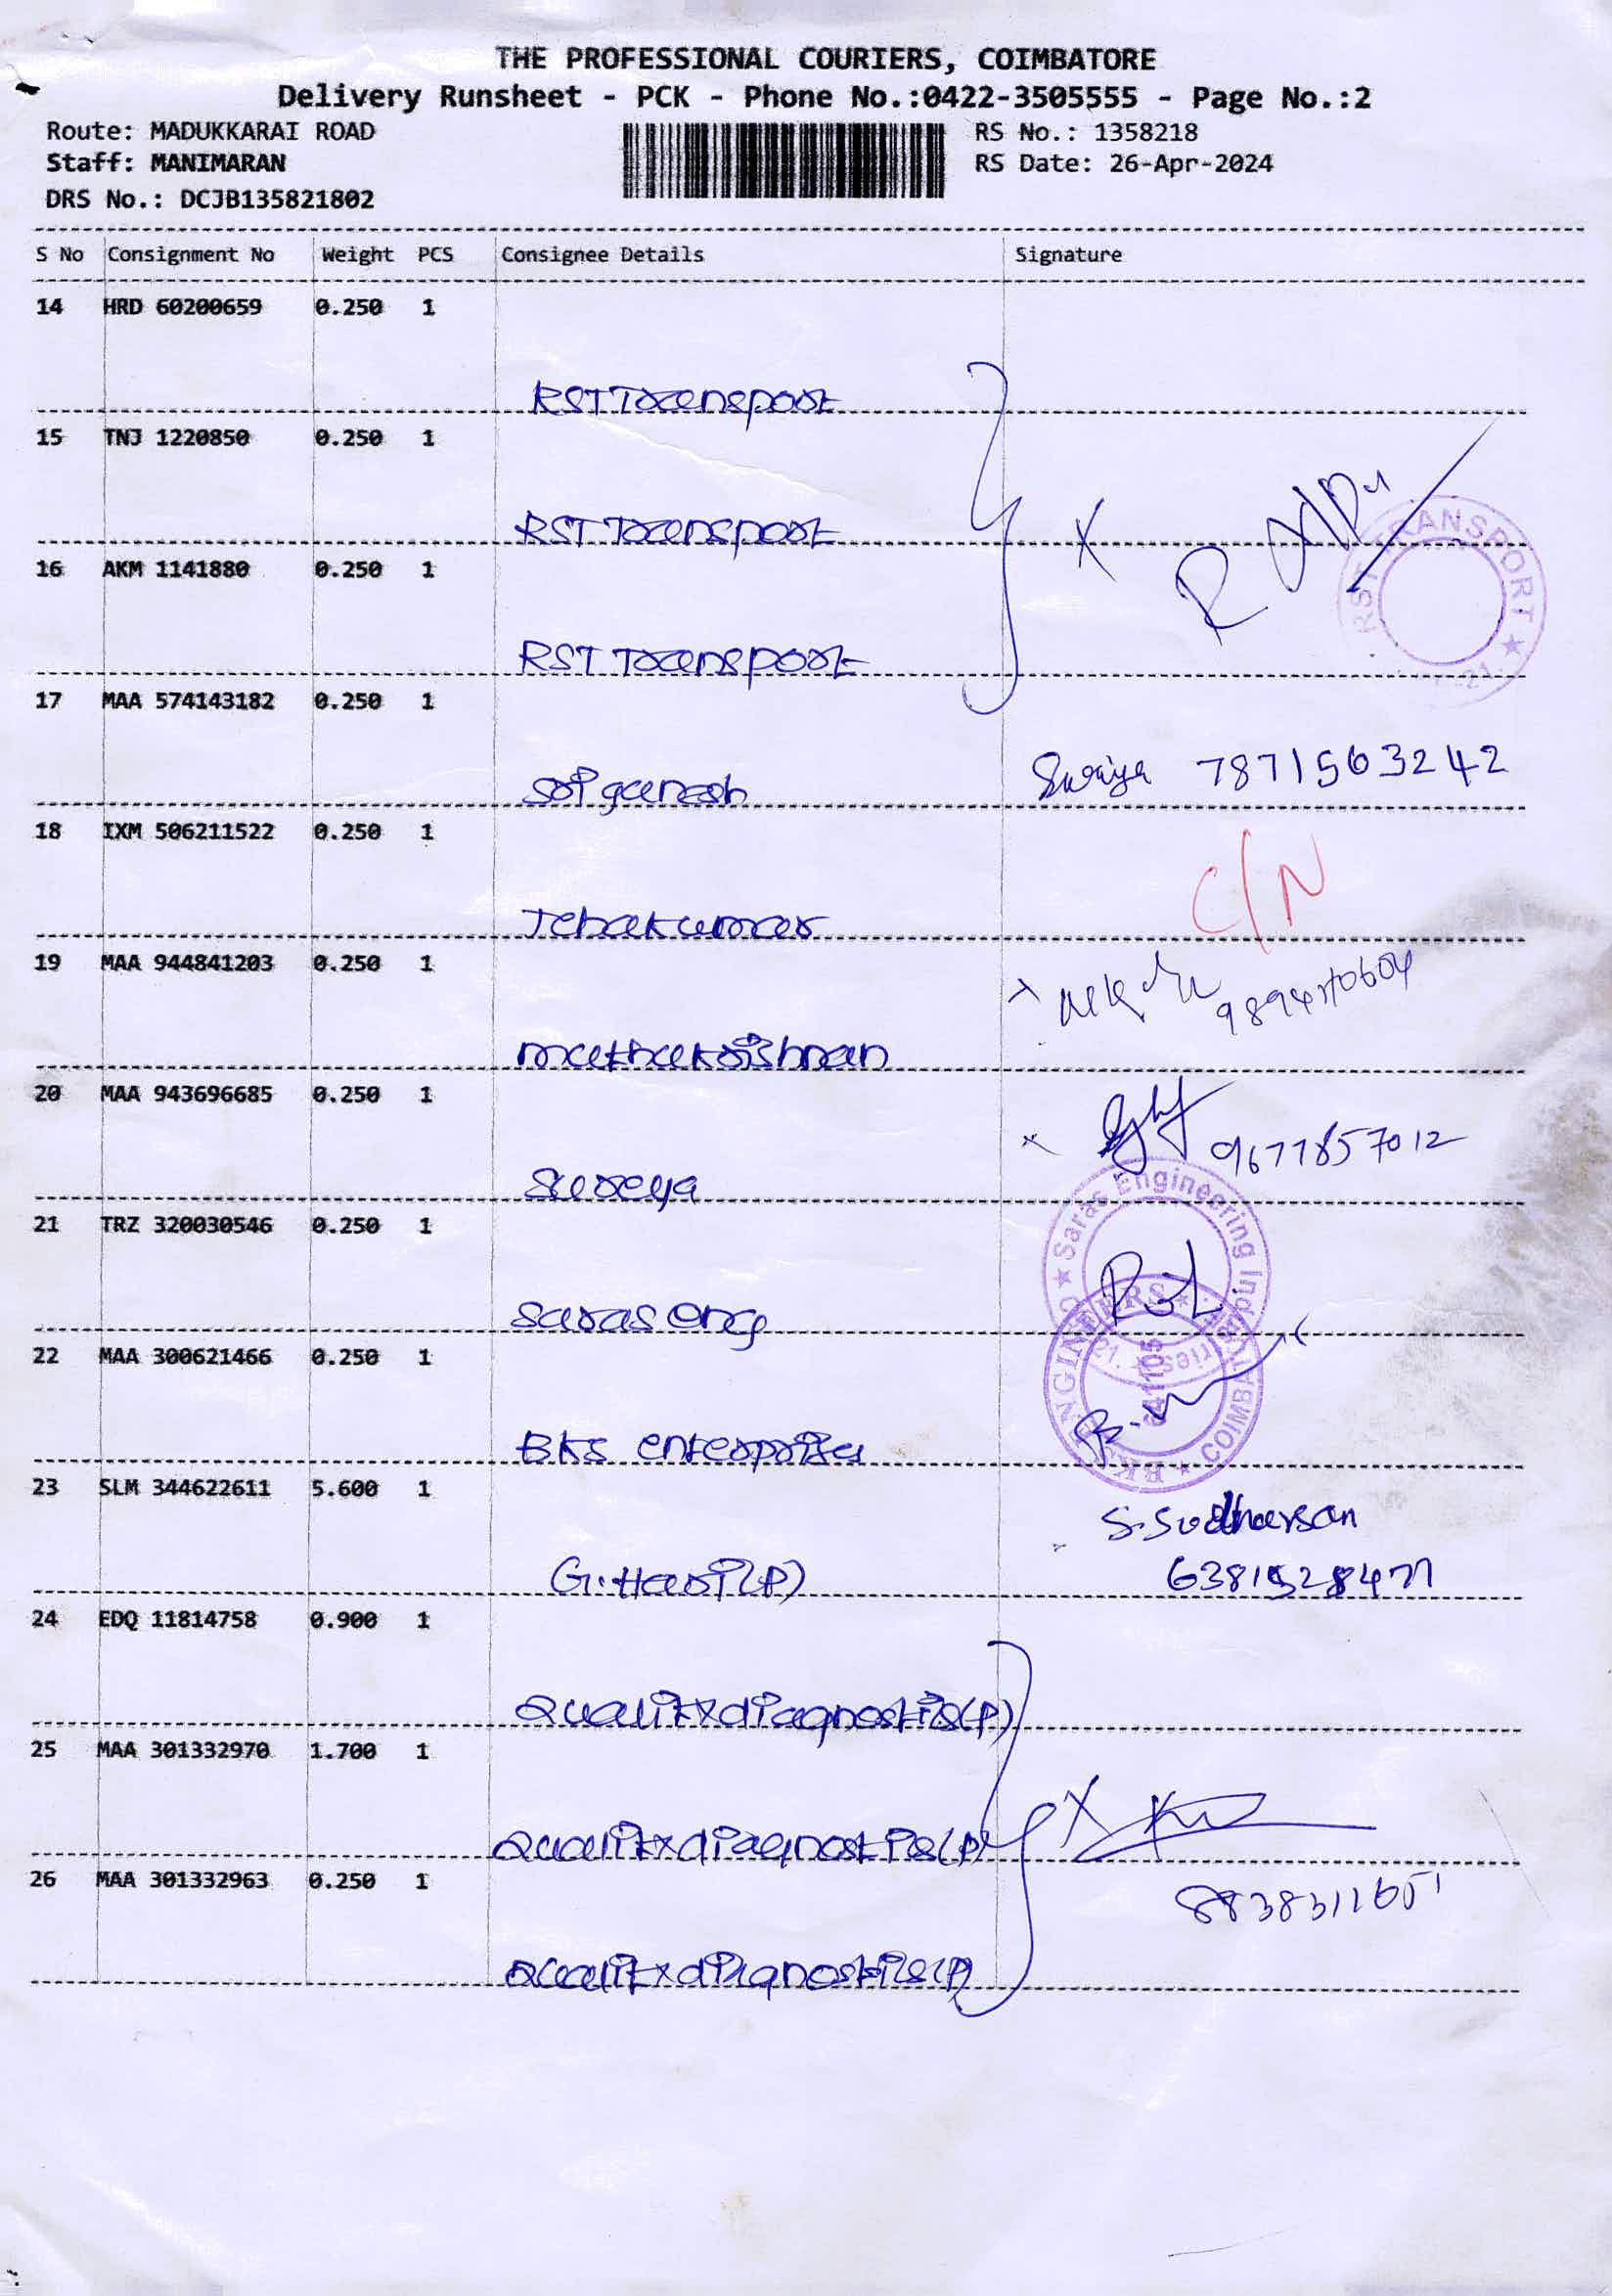 THE PROFESSIONAL COURIERS, COIMBATORE
Delivery Runsheet - PCK - Phone No.:0422-3505555 - Page No.:2
Route: MADUKKARAI ROAD
Staff: MANIMARAN
DRS No.: DCJB135821802
RS No.: 1358218
RS Date: 26-Apr-2024
S No Consignment No Weight PCS Consignee Details Signature
14 HRD 60200659 0.250 1
RST Transport
15 TNJ 1220850 0.250 1
RST Transport
RST TRANSPORT
16 AKM 1141880 0.250 1
RST Transport
17 MAA 574143182 0.250 1
Sri ganesh Suriya 7871563242
18 IXM 506211522 0.250 1
C/N
Jebakumar
19 MAA 944841203 0.250 1
muthukrishnan
20 MAA 943696685 0.250 1
9677857012
Sureya
Saras Engineering Industries
21 TRZ 320030546 0.250 1
Saras eng
22 MAA 300621466 0.250 1
BKS enterprises
23 SLM 344622611 5.600 1
S.Sudharsan
G.Hari(P)
24 EDQ 11814758 0.900 1
Qualitxdiagnostis(P)
25 MAA 301332970 1.700 1
Qualitxdiagnostis(P)
26 MAA 301332963 0.250 1
Qualitxdiagnostis(P)